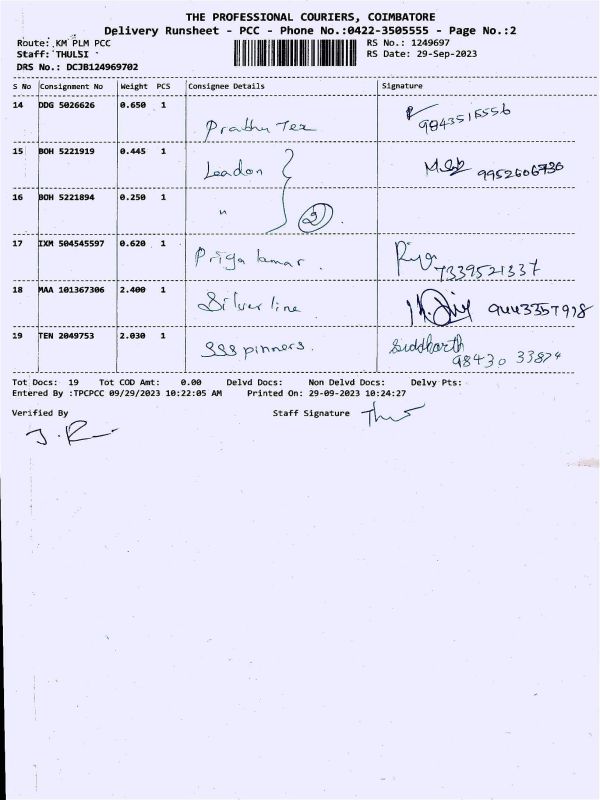 THE PROFESSIONAL COURIERS, COIMBATORE
Delivery Runsheet - PCC - Phone No.:0422-3505555 - Page No.:2
Route: KM PLM PCC RS No.: 1249697
Staff: THULSI RS Date: 29-Sep-2023
DRS No.: DCJB124969702
S No Consignment No Weight PCS Consignee Details Signature
14 DDG 5026626 0.650 1 Prabhu Tex 9843516556
15 BOH 5221919 0.445 1 Leadon 9952606736
16 BOH 5221894 0.250 1 " 2
17 IXM 504545597 0.620 1 Priya kumar. Riya 7339521337
18 MAA 101367306 2.400 1 Silver line 9443357978
19 TEN 2049753 2.030 1 SSS pinners. Siddharth 98430 33874
Tot Docs: 19 Tot COD Amt: 0.00 Delvd Docs: Non Delvd Docs: Delvy Pts:
Entered By :TPCPCC 09/29/2023 10:22:05 AM Printed On: 29-09-2023 10:24:27
Verified By Staff Signature
J. R